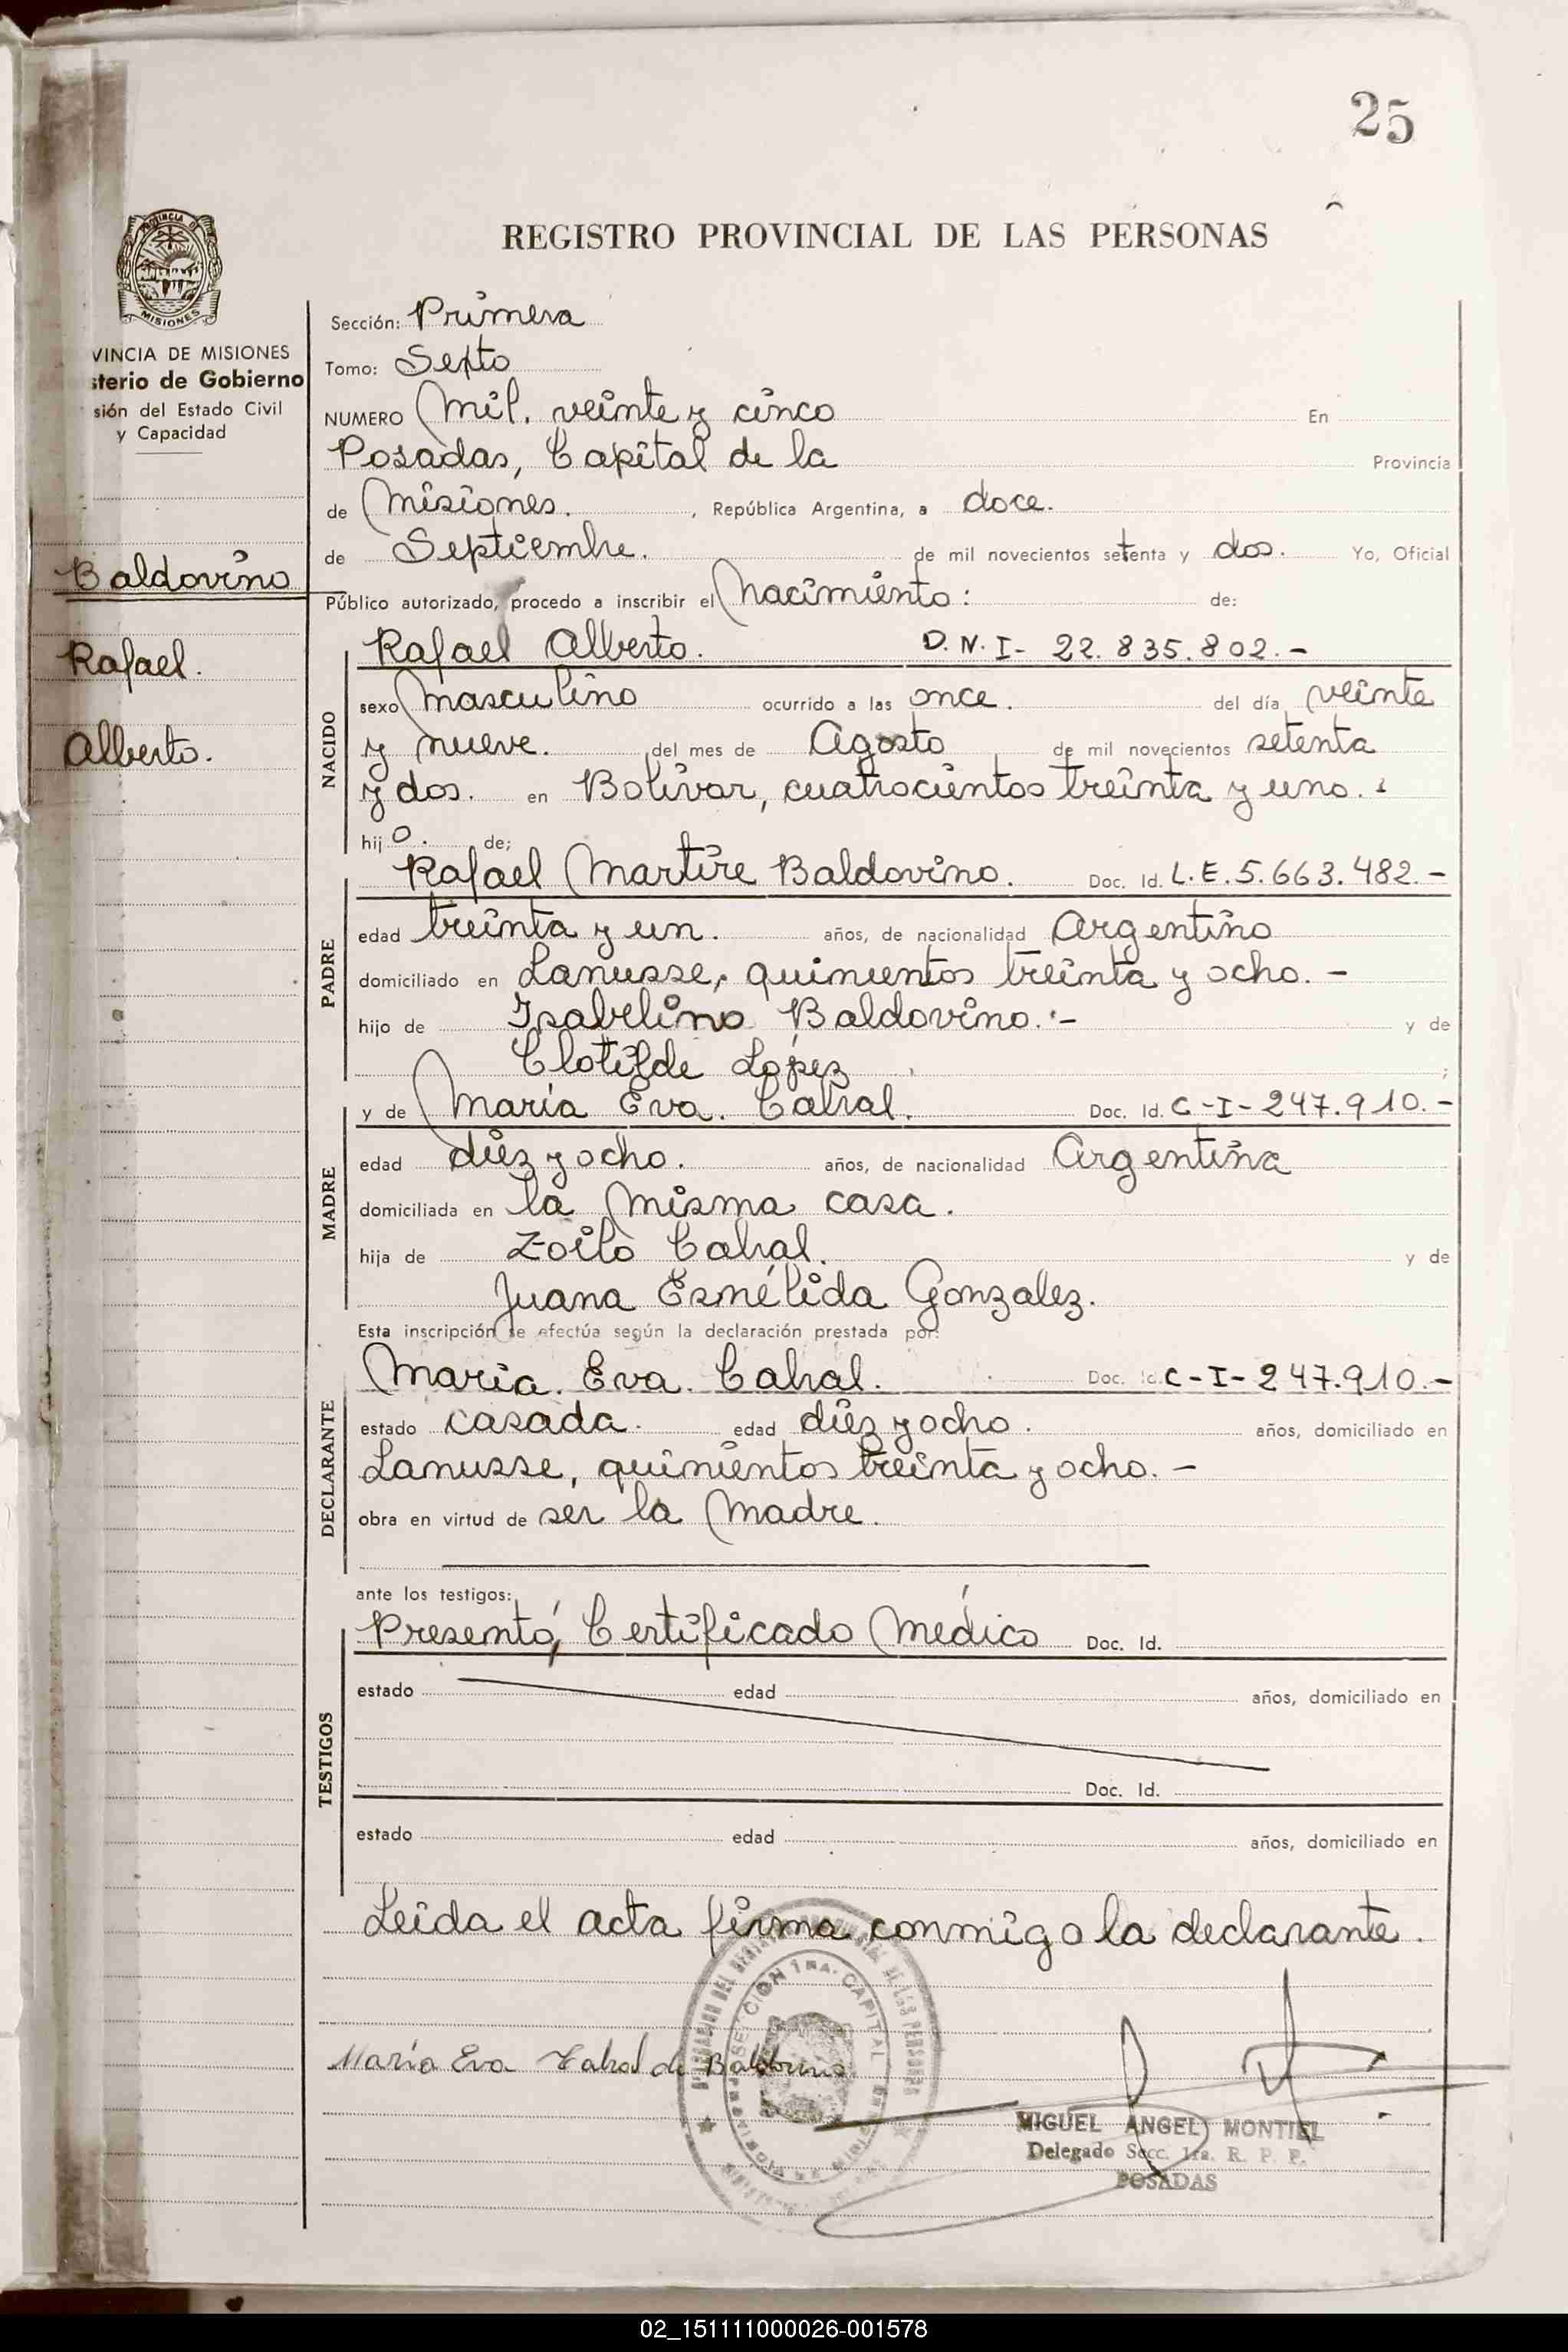 25
REGISTRO PROVINCIAL DE LAS PERSONAS
PROVINCIA
MISIONES
VINCIA DE MISIONES
sterio de Gobierno
sión del Estado Civil
y Capacidad
Baldovino
Rafael.
Alberto.
Sección: Primera
Tomo: Sexto
NUMERO Mil. veinte y cinco En
Posadas, Capital de la Provincia
de Misiones. , República Argentina, a doce.
de Septiembre. de mil novecientos setenta y dos. Yo, Oficial
Público autorizado, procedo a inscribir el Nacimiento: de:
NACIDO
Rafael Alberto. D.N.I- 22.835.802.-
sexo Masculino ocurrido a las once. del día veinte
y nueve. del mes de Agosto de mil novecientos setenta
y dos. en Bolívar, cuatrocientos treinta y uno.
hijo. de;
PADRE
Rafael Martire Baldovino. Doc. Id. L.E.5.663.482.-
edad treinta y un. años, de nacionalidad Argentino
domiciliado en Lanusse, quinientos treinta y ocho.-
hijo de Isabelino Baldovino.- y de
Clotilde López ;
MADRE
y de María Eva. Cabral. Doc. Id. C-I-247.910.-
edad diez y ocho. años, de nacionalidad Argentina
domiciliada en la Misma casa.
hija de Zoilo Cabral. y de
Juana Esmélida Gonzalez.
Esta inscripción se efectúa según la declaración prestada por:
DECLARANTE
María. Eva. Cabral. Doc. Id. C-I-247.910.-
estado casada. edad diez y ocho. años, domiciliado en
Lanusse, quinientos treinta y ocho.-
obra en virtud de ser la Madre.
ante los testigos:
TESTIGOS
Presentó, Certificado Médico Doc. Id.
estado edad años, domiciliado en
Doc. Id.
estado edad años, domiciliado en
Leida el acta firma conmigo la declarante.
SECCION 1RA. CAPITAL
María Eva Cabral de Baldovino
MIGUEL ANGEL MONTIEL
Delegado Secc. 1ra. R. P. P.
POSADAS
02_151111000026-001578